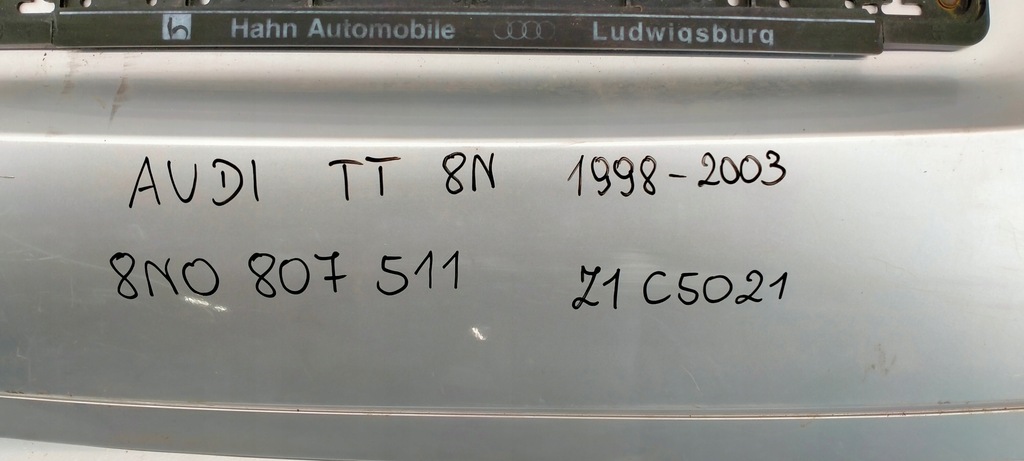 Hahn Automobile Ludwigsburg
AUDI TT 8N 1998-2003
8N0 807 511 Z1 C5021